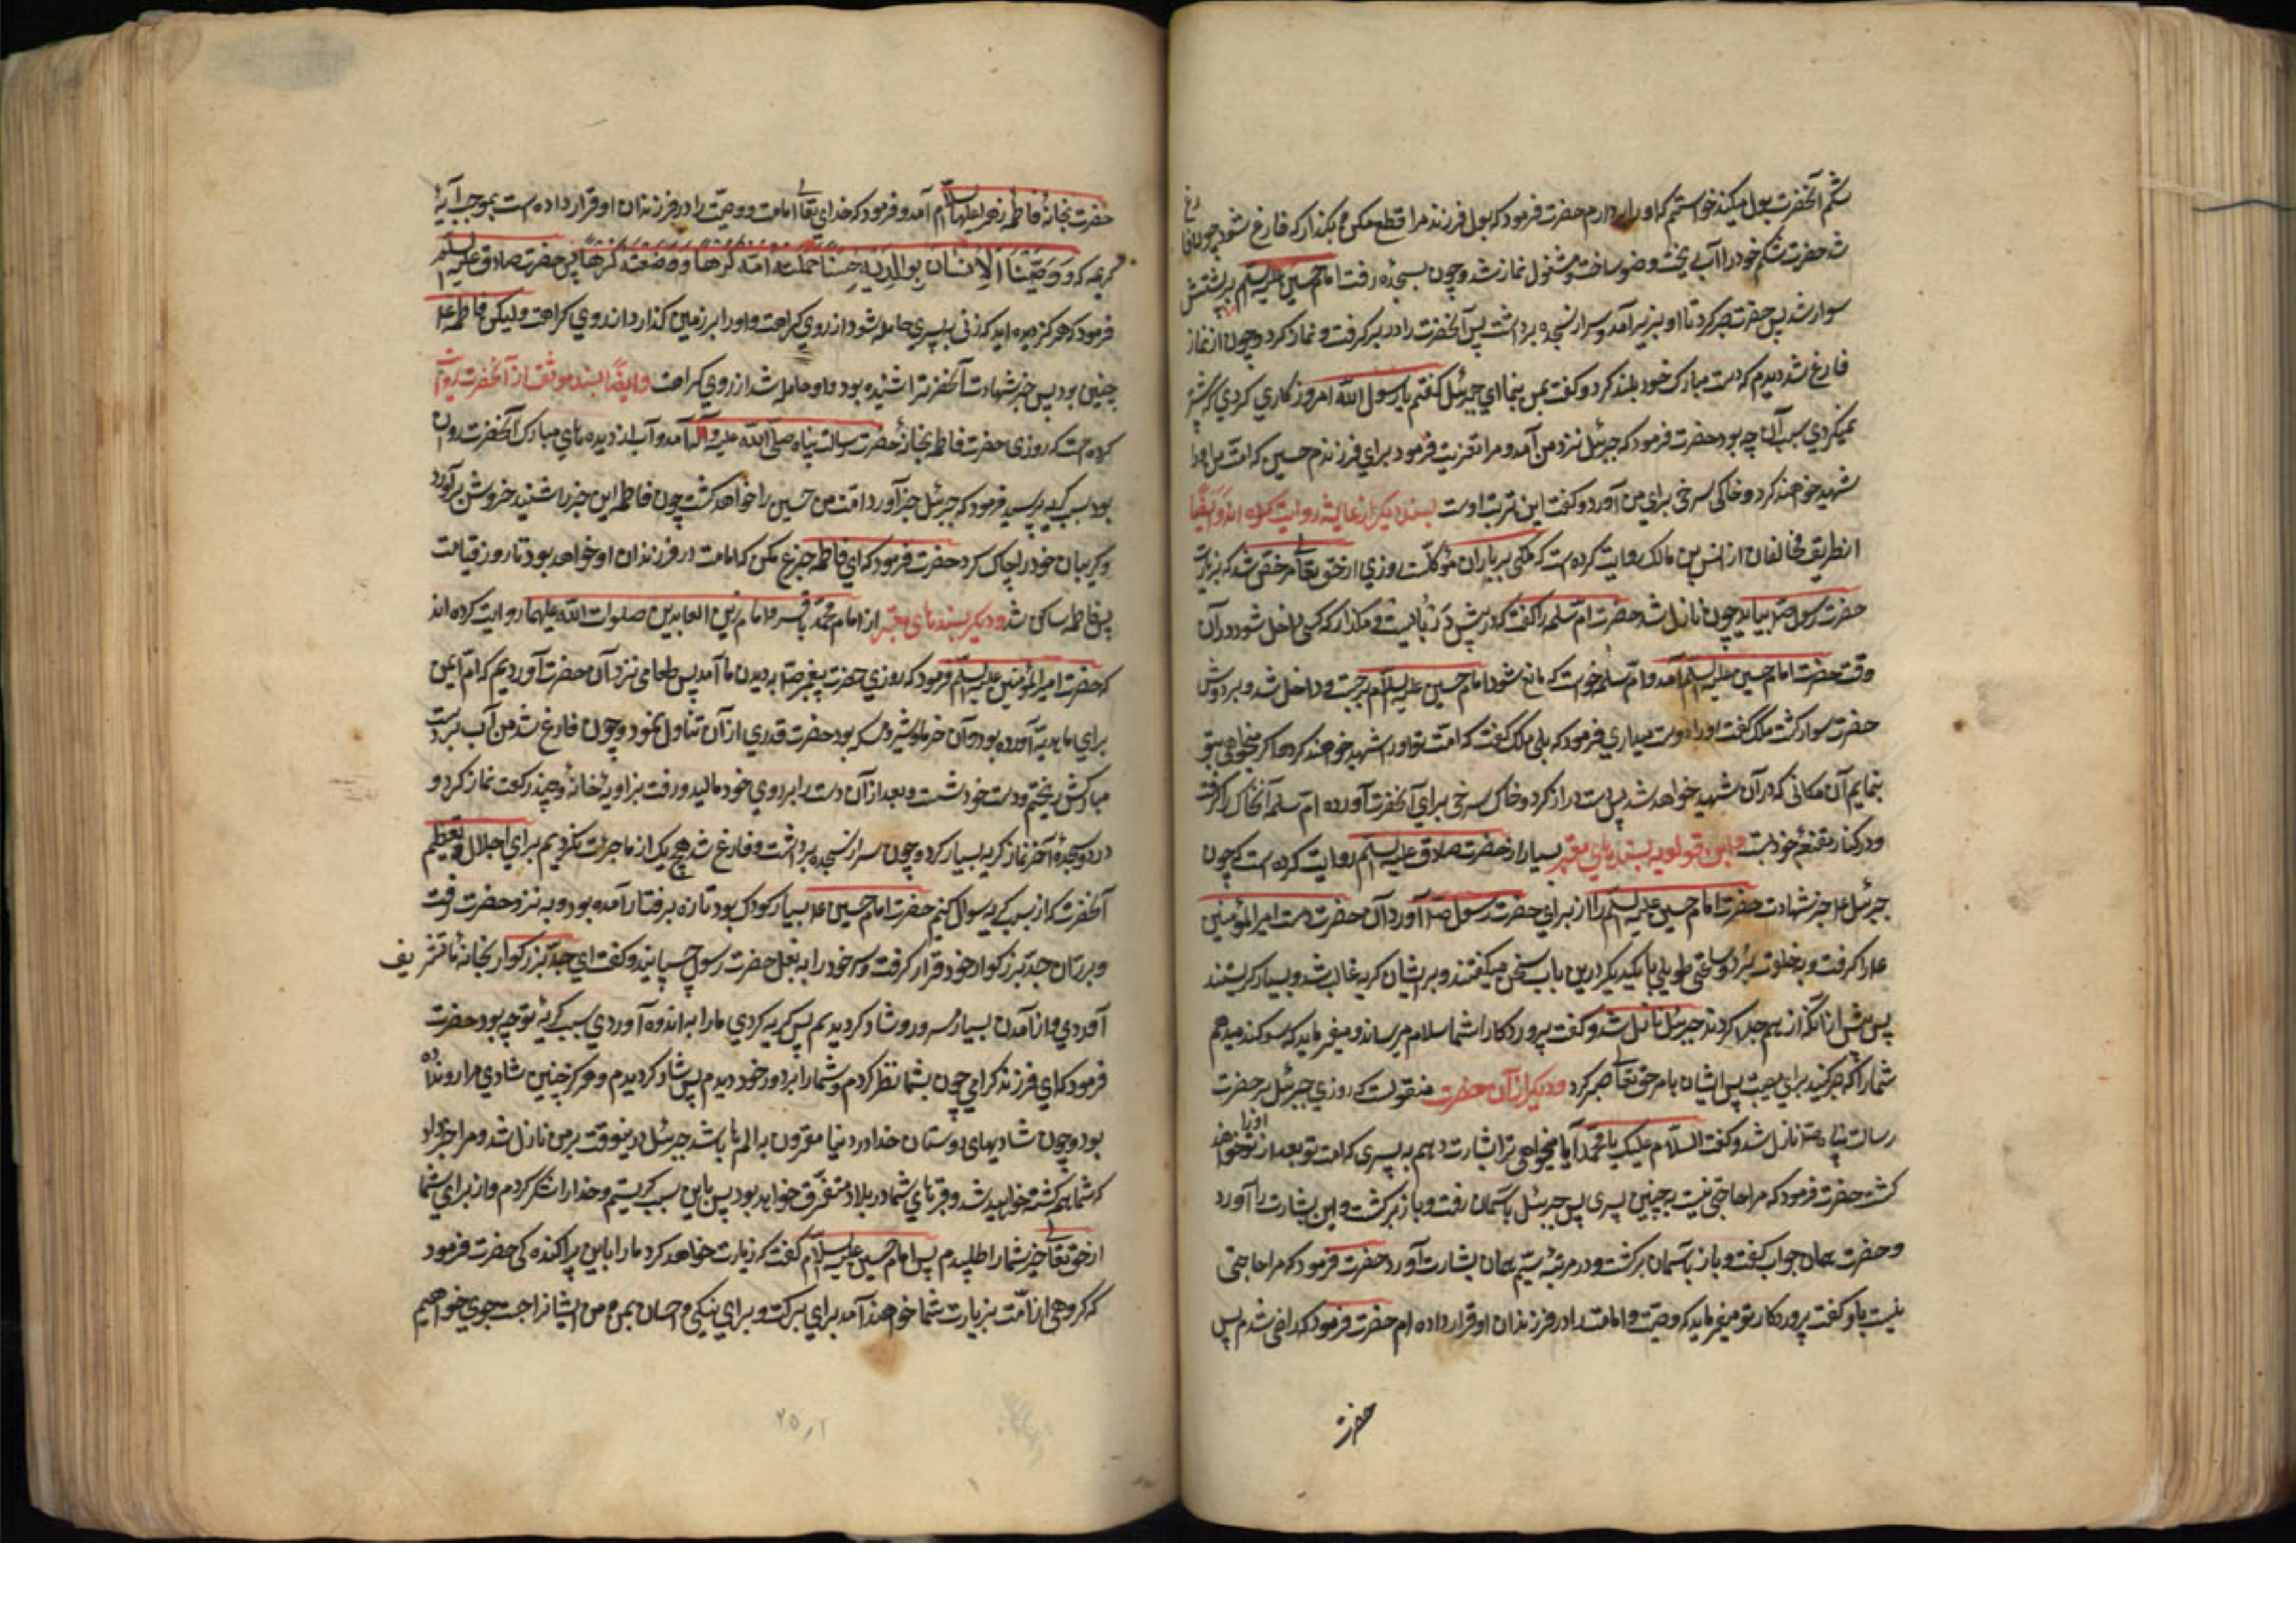 شکم آنحضرت بول میکند خواستم که او را بردارم حضرت فرمود که بول فرزند مرا قطع مکن و بگذار که فارغ شود چون فارغ
شد حضرت شکم خود را آب ریخت و وضو ساخت و مشغول نماز شد و چون بسجده رفت امام حسین علیه السلم بر پشتش
سوار شد پس حضرت صبر کرد تا او بزیر آمد و سر از سجده برداشت پس آنحضرت را در بر گرفت و نماز کرد و چون از نماز
فارغ شد دیدم که دست مبارک خود بلند کرد و گفت بمن بنما ای جبرئیل گفتم یا رسول الله امروز کاری کردی که پیشتر
نمیکردی سبب آن چه بود حضرت فرمود که جبرئیل نزد من آمد و مرا تعزیت فرمود برای فرزندم حسین که امت من او را
شهید خواهند کرد و خاکی سرخی برای من آورد و گفت این تربت اوست بسند دیگر از عایشه روایت کرده اند و ایضا
از طریق مخالفان از انس بن مالک روایت کرده است که ملکی بر باران موکلست روزی از حق تعالی مرخص شد که بزیارت
حضرت رسول ص بیاید چون نازل شد حضرت ام سلمه را گفت که در پیش در بایست و مگذار که کسی داخل شود در آن
وقت حضرت امام حسین علیه السلم آمد و ام سلمه خواست که مانع شود امام حسین علیه السلام برجست و داخل شد و بر دوش
حضرت سوار گشت ملک گفت او را دوست میداری فرمود که بلی ملک گفت که امت تو او را شهید خواهند کرد و اگر میخواهی بتو
بنمایم آن مکانی که در آن شهید خواهد شد پس دست دراز کرد و خاک سرخی برای آنحضرت آورده ام سلمه آنخاک را گرفت
و در کنار مقنعهٔ خود بست و ابن قولویه بسندهای معتبر بسیار از حضرت صادق علیه السلم روایت کرده است که چون
جبرئیل ع خبر شهادت حضرت امام حسین علیه السلم را از برای حضرت رسول ص آورد آن حضرت دست امیر المؤمنین
ع را گرفت و بخلوت برد و ساعتی طویلی با یکدیگر درین باب سخن میگفتند و بر ایشان گریه غالب شد و بسیار گریستند
پس پیش از آنکه از هم جدا گردند جبرئیل نازل شد و گفت پروردگارا شما سلام میرساند و میفرماید که سوکند میدهم
شما را که صبر کنید برین مصیبت پس ایشان بامر حق تعالی صبر کرد و دیگر از آن حضرت منقولست که روزی جبرئیل بر حضرت
رسالت پناه ص نازل شد و گفت السلام علیک یا محمد آیا میخواهی ترا بشارت دهم به پسری که امت تو بعد از تو او را خواهند
کشت حضرت فرمود که مرا حاجتی نیست به چنین پسری پس جبرئیل باسمان رفت و باز برگشت و این بشارت را آورد
و حضرت همان جواب گفت و باز باسمان برگشت و در مرتبهٔ سیم همان بشارت آورد حضرت فرمود که مرا حاجتی
نیست باو گفت پروردکار تو میفرماید که وصیت و امامت را در فرزندان او قرار داده ام حضرت فرمود که راضی شدم پس
حضرت
حضرت بخانهٔ فاطمه زهرا علیها السلام آمد و فرمود که خدای تعالی امامت و وصیت را در فرزندان او قرار داده است بموجب آیهٔ
کریمه که و وصینا الانسان بوالدیه حسنا حملته امه کرها و وضعته کرها پس حضرت صادق علیه السلم
فرمود که هرگز دیده اید که زنی به پسری حامله شود از روی کراهت و او را بر زمین گذارد از روی کراهت و لیکن فاطمه ع
چنین بود پس خبر شهادت آنحضرت را شنیده بود و او حامله شد از روی کراهت و ایضا بسند موثق از آنحضرت روایت
کرده است که روزی حضرت فاطمه بخانهٔ حضرت رسالت پناه صلی الله علیه و آله آمد و آب از دیده های مبارک آنحضرت روان
بود سبب گریه پرسید فرمود که جبرئیل خبر آورد امت من حسین را خواهد کشت چون فاطمه این خبر را شنید خروش برآورد
و گریبان خود را چاک کرد حضرت فرمود که ای فاطمه جزع مکن که امامت در فرزندان او خواهد بود تا روز قیامت
پس فاطمه ساکن شد و دیگر بسندهای معتبر از امام محمد باقر و امام زین العابدین صلوات الله علیهما روایت کرده اند
که حضرت امیر المؤمنین علیه السلم فرمود که روزی حضرت پیغمبر ص بدیدن ما آمد پس طعامی نزد آن حضرت آوردیم که ام ایمن
برای ما هدیه آورده بود و آن خرما و شیر و مسکه بود حضرت قدری از آن تناول نمود و چون فارغ شد من آب بر دست
مبارکش ریختم و دست خود شست و بعد از آن دست را بر روی خود مالید و رفت بزاویهٔ خانه و چند رکعت نماز کرد و
در دو سجدهٔ آخر نماز گریه بسیار کرد و چون سر از سجده برداشت و فارغ شد هیچ یک از ما جرئت نکردیم برای اجلال و تعظیم
آنحضرت که از سبب گریه سوال کنیم حضرت امام حسین ع بسیار کودک بود تازه برفتار آمده بود و به نزد حضرت رفت
و بر ران جد بزرگوار خود قرار گرفت و سر خود را به بغل حضرت رسول چسپانید و گفت ای جد بزرگوار بخانهٔ ما تشریف
آوردی و از آمدن بسیار مسرور و شاد کردیدیم پس گریه کردی ما را به اندوه آوردی سبب گریهٔ تو چه بود حضرت
فرمود که ای فرزند گرامی چون بشما نظر کردم و شما را بر دور خود دیدم پس شاد کردیدم و هرگز چنین شادی مرا رو نداده
بود و چون شادیهای دوستان خدا در دنیا مقرون به الم ها باشد جبرئیل درینوقت بر من نازل شد و مرا خبر داد
که شما همه کشته خواهید شد و قبرهای شما در بلاد متفرق خواهد بود پس باین سبب گریستم و خدا را شکر کردم و از برای شما
از حق تعالی خیر شما را طلبیدم پس امام حسین علیه السلام گفت که زیارت خواهد کرد ما را باین پراکنده کی حضرت فرمود
که گروهی از امت بزیارت شما خواهند آمد برای برکت و برای نیکی و احسان بمن و من ایشانرا جست جوی خواهیم